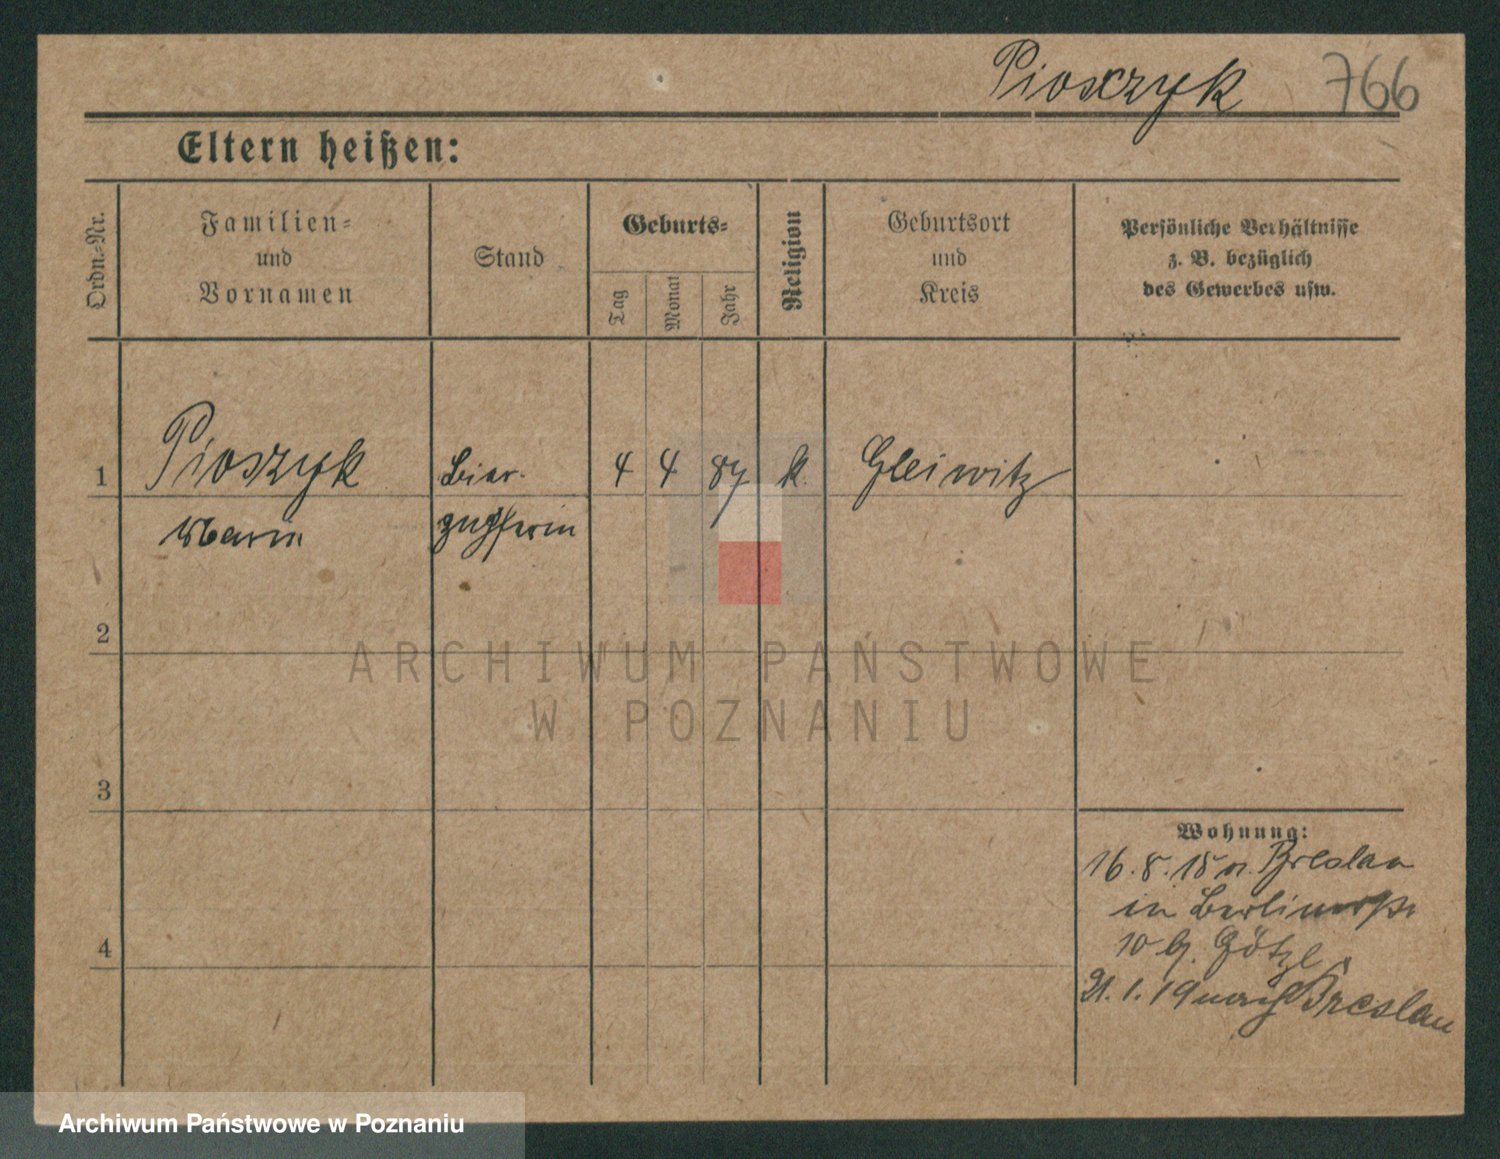 Pioszyk 766
Eltern heißen:
Ordn.-Nr.
Familien-
und
Vornamen
Stand
Geburts-
Tag
Monat
Jahr
Religion
Geburtsort
und
Kreis
Persönliche Verhältnisse
z. B. bezüglich
des Gewerbes usw.
1 Pioszyk Bier- 4 4 87 k. Gleiwitz
Marie zapferin
2
3
4
Wohnung:
16.8.18 v. Breslau
in Berlinerstr
10 b. Götze
21.1.19 nach Breslau
ARCHIWUM PAŃSTWOWE
W POZNANIU
Archiwum Państwowe w Poznaniu